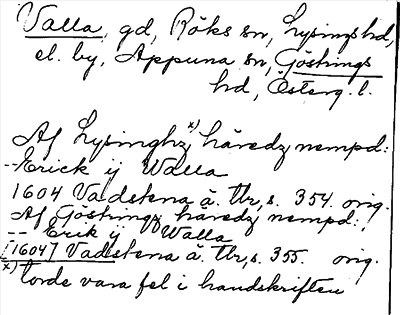 Valla, gd, Röks sn, Lysings hd,
el. by, Appuna sn, Göstrings
hd, Österg. l.
Af Lysinghz x) häredz nempd:
-- Erick ij Walla
1604 Vadstena ä. tbr, s. 354. orig.
Af Göstringz häredz nempd:,
-- Erik ij Walla
[1604] Vadstena ä. tbr, s. 355. orig.
x) torde vara fel i handskriften